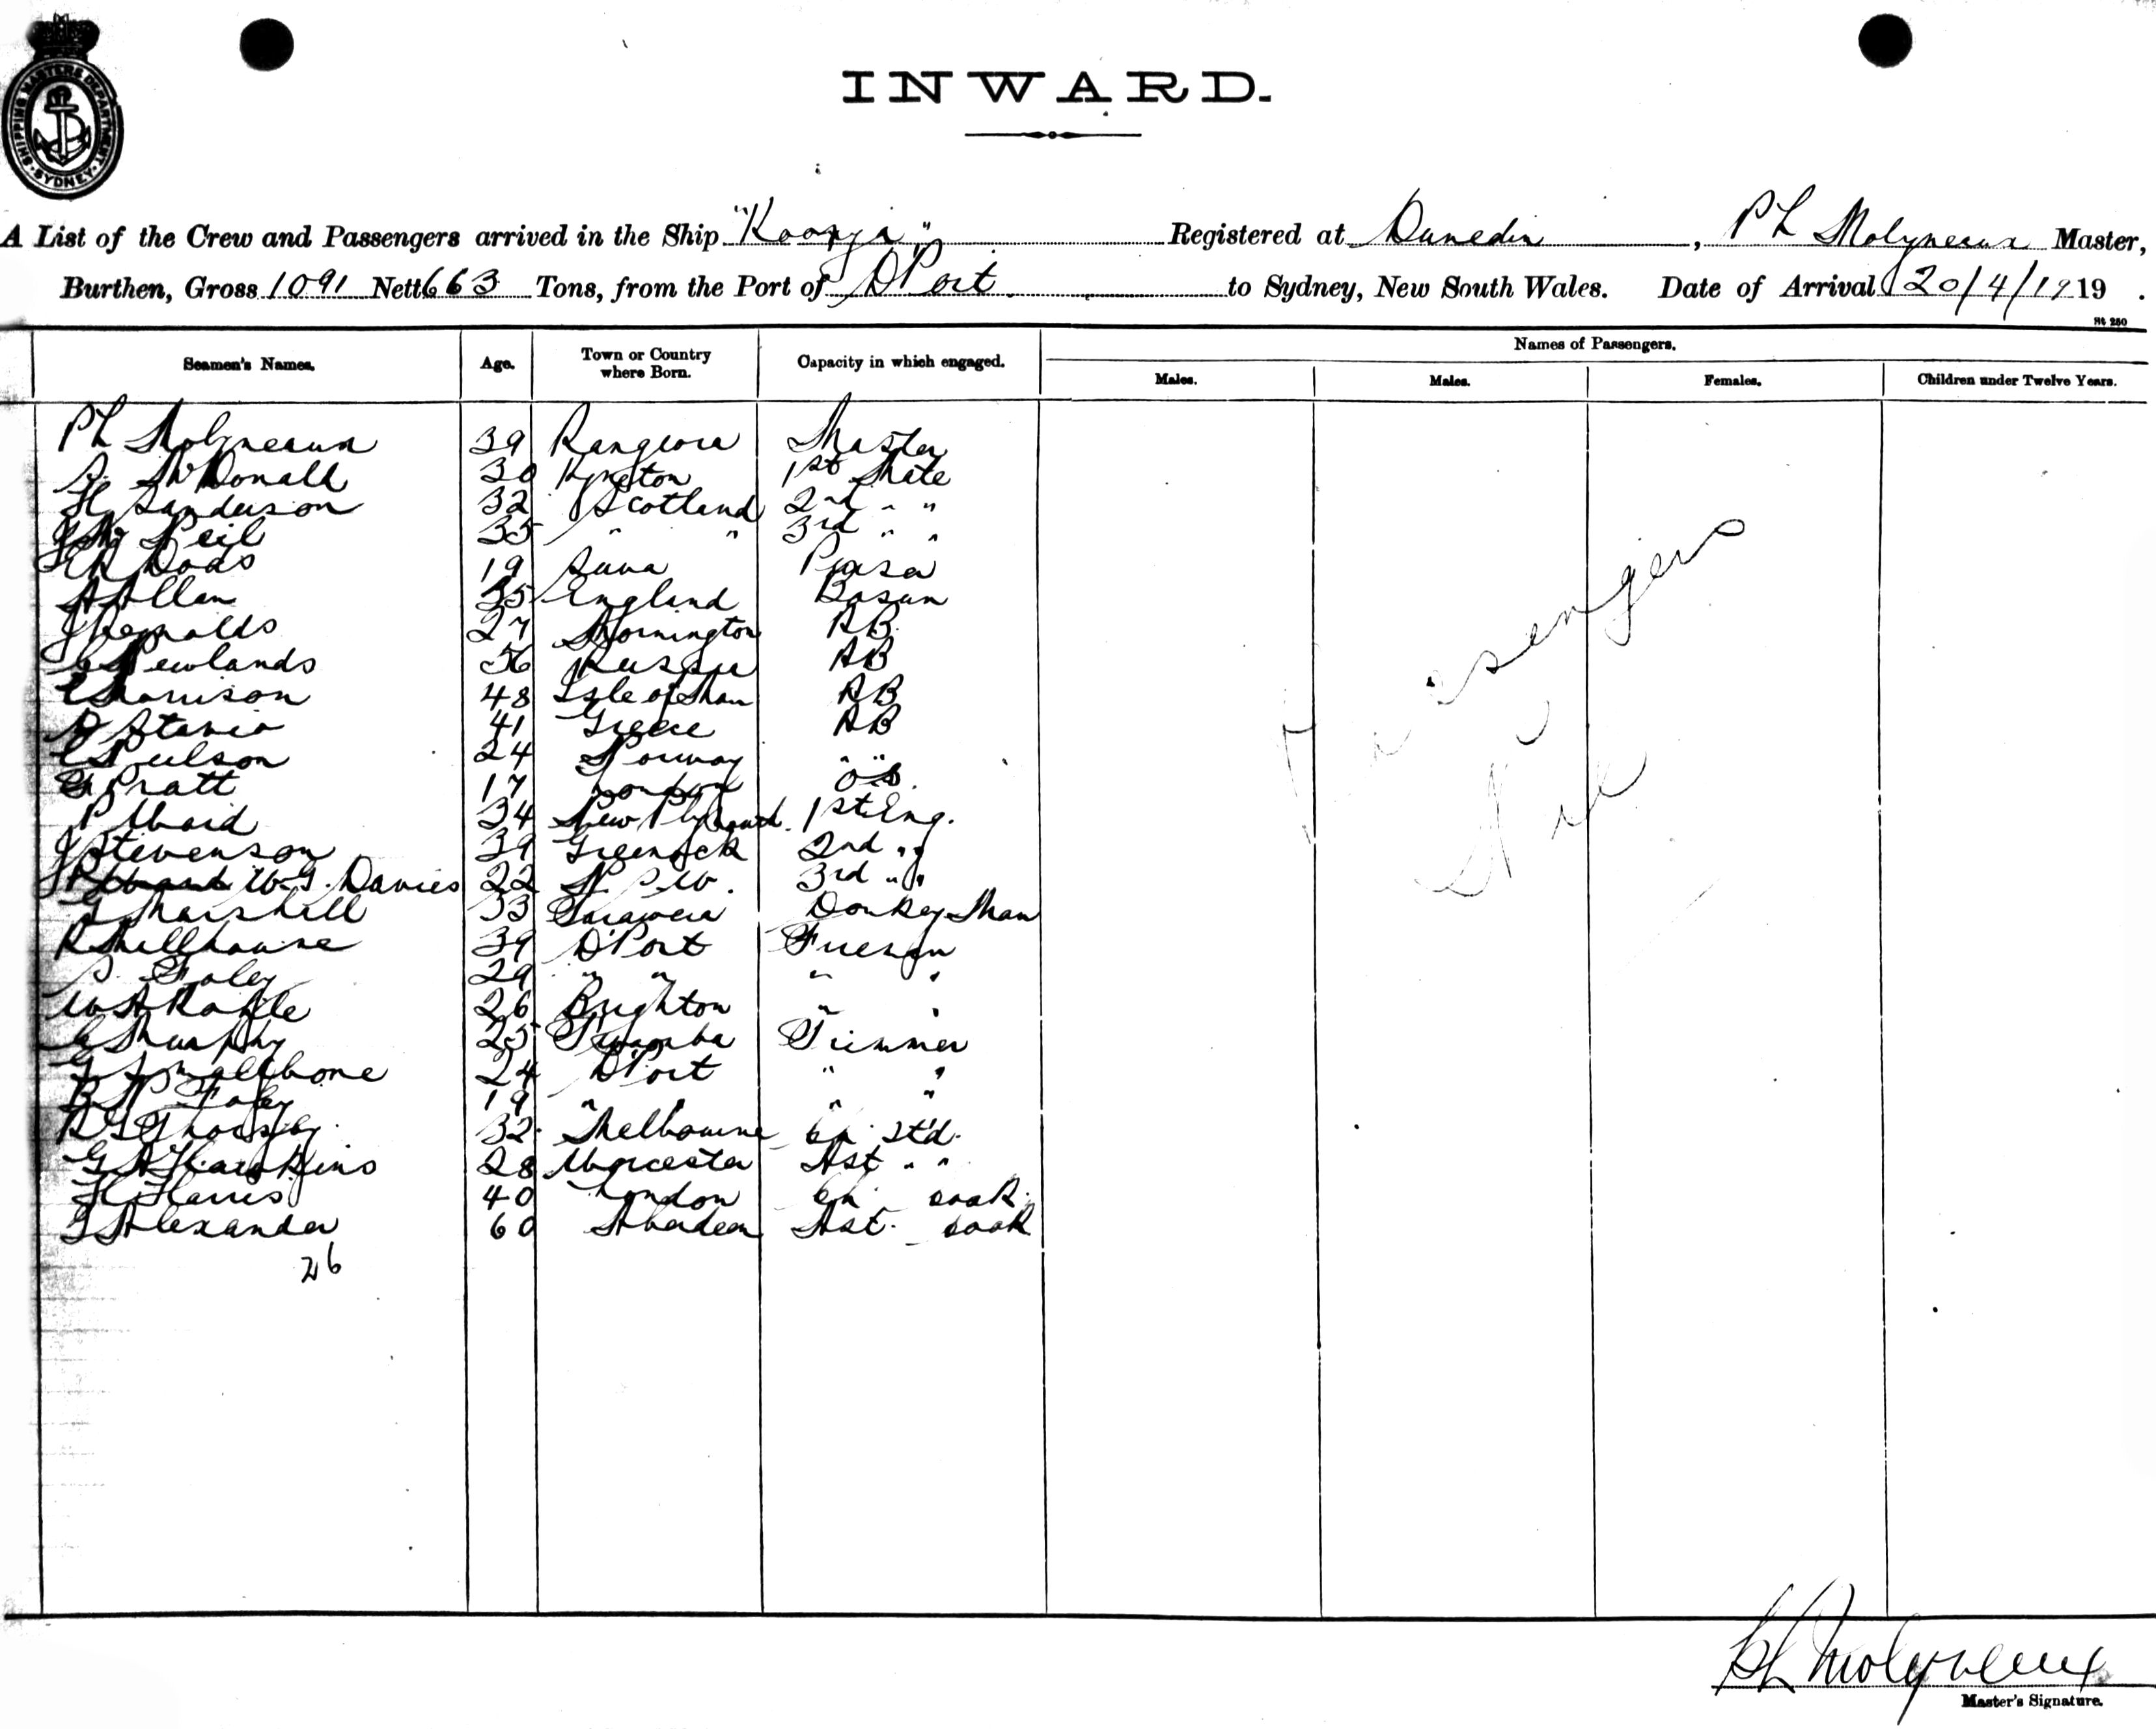 SHIPPING MASTERS DEPARTMENT
SYDNEY
INWARD.
A List of the Crew and Passengers arrived in the Ship "Koonya" Registered at Dunedin, P L Molyneaux Master,
Burthen, Gross 1091 Nett 663 Tons, from the Port of D'Port to Sydney, New South Wales. Date of Arrival 20/4/1919.
St 250
Seamen's Names. Age. Town or Country where Born. Capacity in which engaged. Names of Passengers.
Males. Males. Females. Children under Twelve Years.
P L Molyneaux 39 Rangiora Master
McDonald 30 Kyneton 1st Mate
H Sanderson 32 Scotland 2nd " "
Neil 35 " " 3rd " "
Dods 19 Suva Purser
A Allan 35 England Bosun
J Reynolds 27 Mornington AB
Newlands 56 Russia AB
Morrison 48 Isle of Man AB
Stavio 41 Greece AB
Poulson 24 Norway " "
G Pratt 17 London OS
P Ward 34 New Plymouth 1st Eng.
J Stevenson 39 Greenock 2nd " "
W. J. Davies 22 N S W. 3rd " "
Marshall 33 Donkey Man
R Millhouse 39 D'Port Fireman
Foley 29 " " " "
26 Brighton " "
Murphy 25 Trimmer
G Smallbone 24 D'Port " "
Foley 19 " " " "
32 Melbourne Ch. Std.
G A Hawkins 28 Worcester Ast " "
H Harris 40 London Ch. Cook.
G Alexander 60 Aberdeen Ast. Cook
26
Passengers
Nil
P L Molyneaux
Master's Signature.